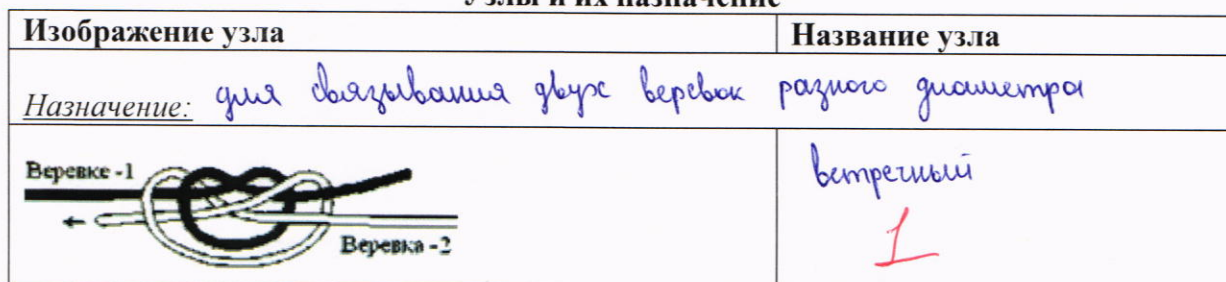 Узлы и их назначение
Изображение узла
Название узла
Назначение: для связывания двух веревок разного диаметра
Веревке -1
Веревка -2
встречный
1